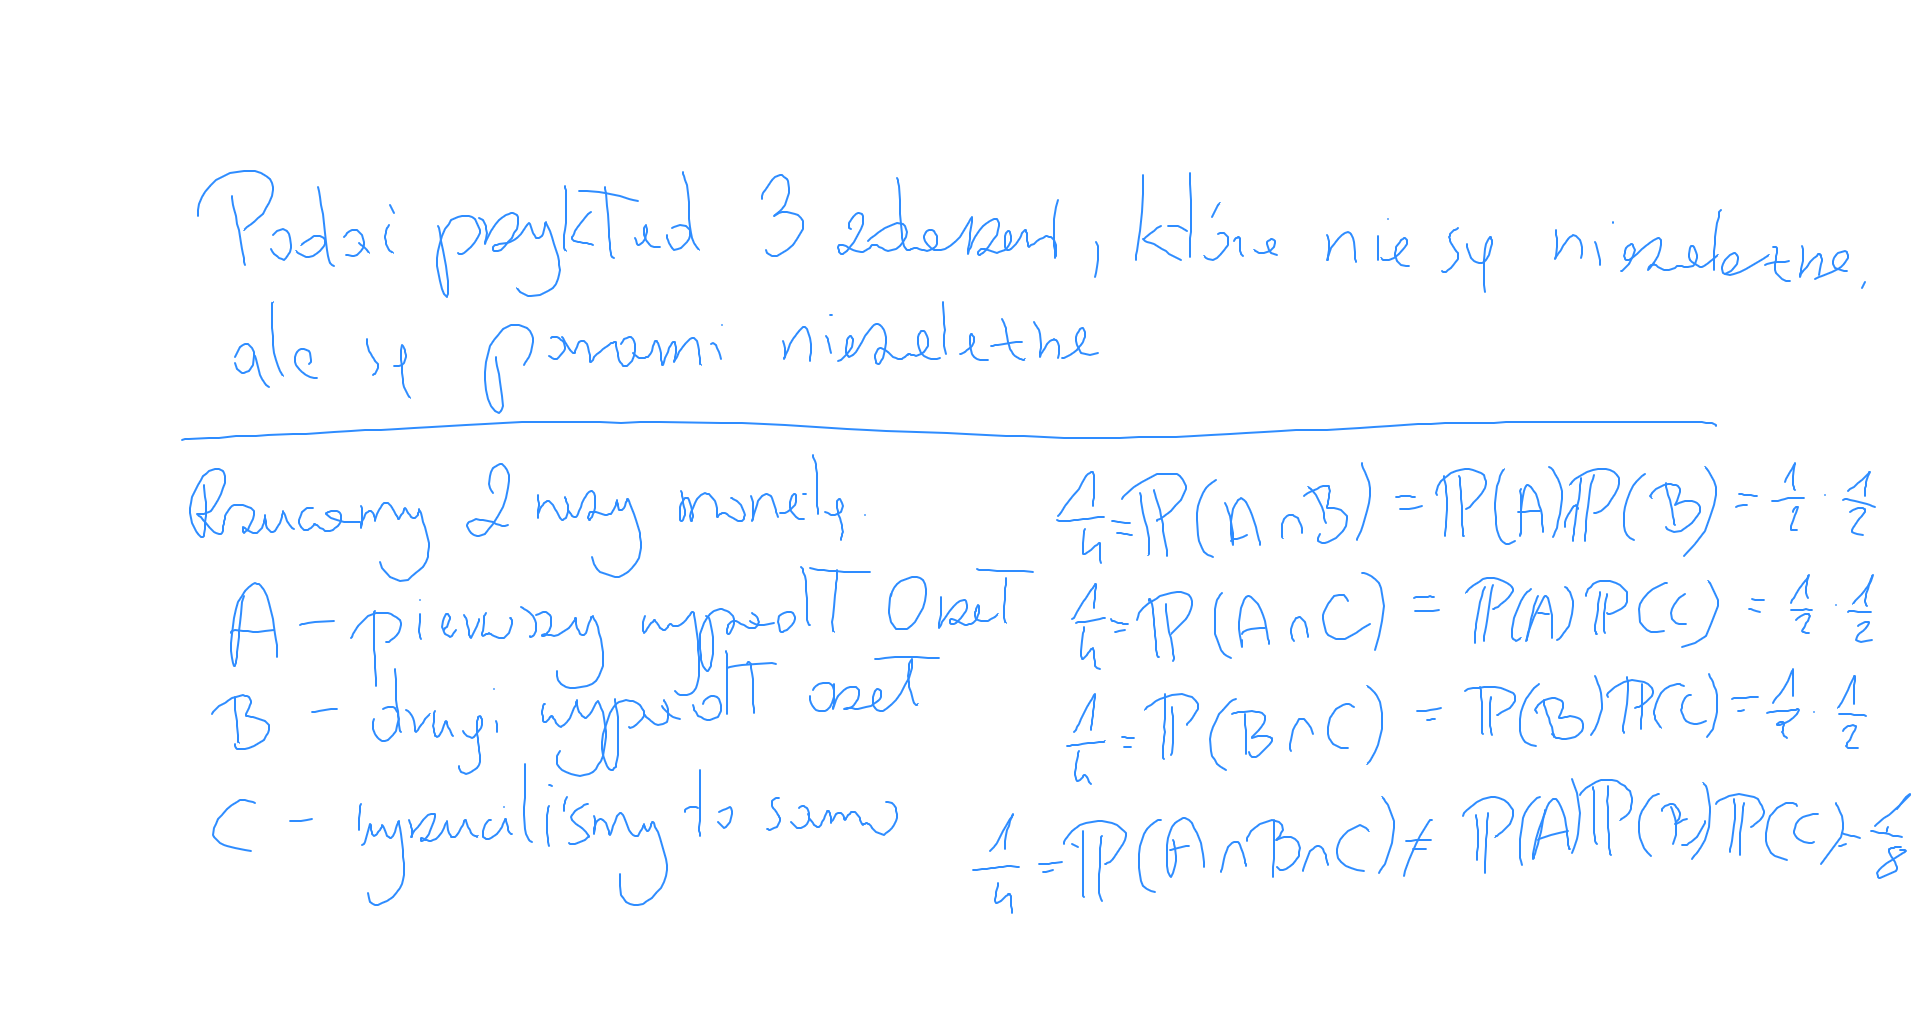 Podaj przykład 3 zdarzeń, które nie są niezależne,
ale są parami niezależne
Rzucamy 2 razy monetą.
A - pierwszy wypadł Orzeł
B - drugi wypadł orzeł
C - wyrzuciliśmy to samo
1/4 = ℙ(A∩B) = ℙ(A)ℙ(B) = 1/2 · 1/2
1/4 = ℙ(A∩C) = ℙ(A)ℙ(C) = 1/2 · 1/2
1/4 = ℙ(B∩C) = ℙ(B)ℙ(C) = 1/2 · 1/2
1/4 = ℙ(A∩B∩C) ≠ ℙ(A)ℙ(B)ℙ(C) = 1/8